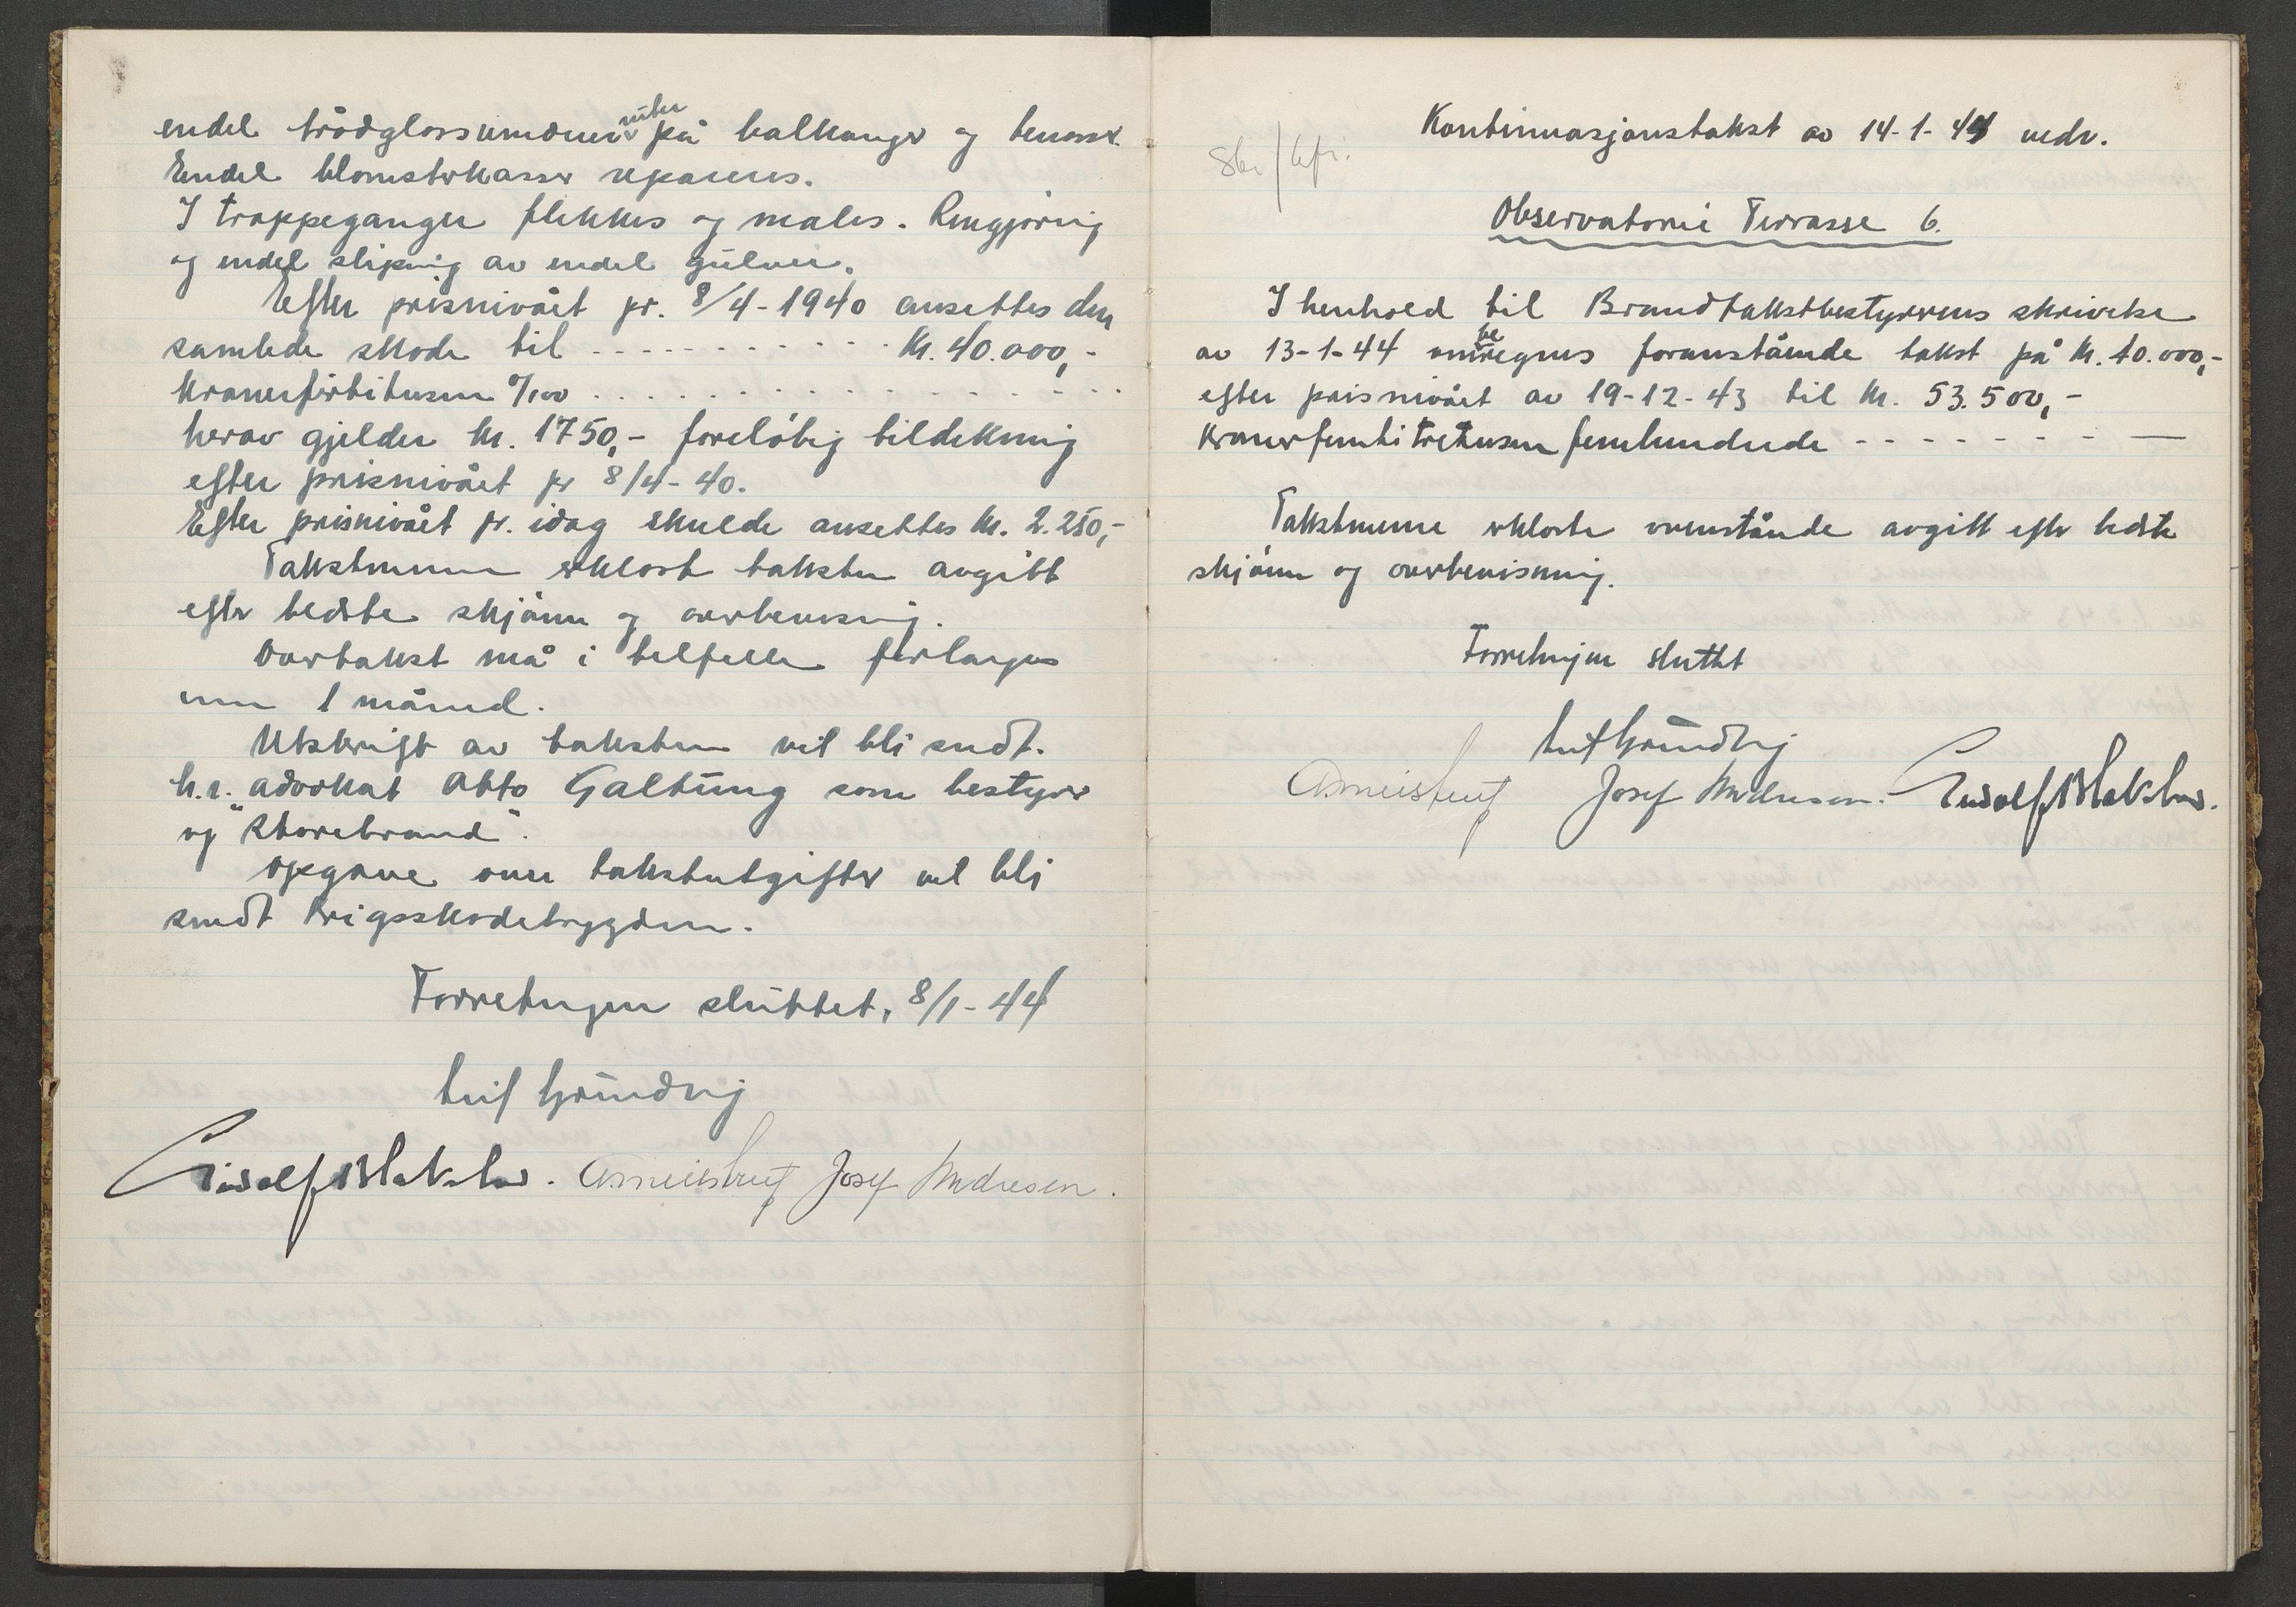 endel trådglassundener ruter på balkanger og terasse.
Endel blomsterkasser repareres.
I trappeganger flekkes og males. Rengjøring
og endel sliping av endel gulver.
Efter prisnivået pr. 8/4-1940 ansettes den
samlede skade til - - - - - - - - - - - Kr. 40.000,-
Kronerførtitusen 0/100 . . . . . . . . . . . . . . .
herav gjelder kr. 1750,- foreløbig tildekning
efter prisnivået pr 8/4-40.
Efter prisnivået pr. idag skulde ansettes kr. 2.250,-
Takstmenn erklært taksten avgitt
efter bedste skjønn og overbevisning.
Overtakst må i tilfelle forlanges
inn 1 måned.
Utskrift av taksten vil bli sendt.
h.r. advokat Otto Galtung som bestyrer
og "Storebrand".
Opgave over takstutgifter vil bli
sendt Krigsskadetrygden.
Forretningen sluttet, 8/1-44
Leif Grundvig
Josef Andresen.
Kontinuasjonstakst av 14-1-44 vedr.
Observatorie Terrasse 6.
I henhold til Brandtakstbestyrerens skrivelse
av 13-1-44 omberegnes foranstående takst på kr. 40.000,-
efter prisnivået av 19-12-43 til kr. 53.500,-
Kronerfemtitretusen femhundrede - - - - - - - —
Takstmenne erklærte ovenstående avgitt efter bedste
skjønn og overbevisning.
Forretningen sluttet
Leif Grundvig
Josef Andresen.